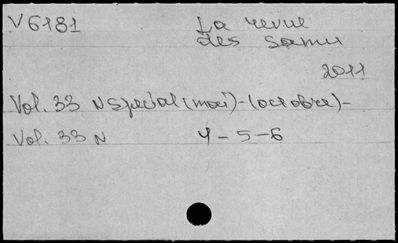 V 6181
La revue
des samu
2011
Vol. 33 N special (mai)-(octobre)-
Vol. 33 N 4-5-6